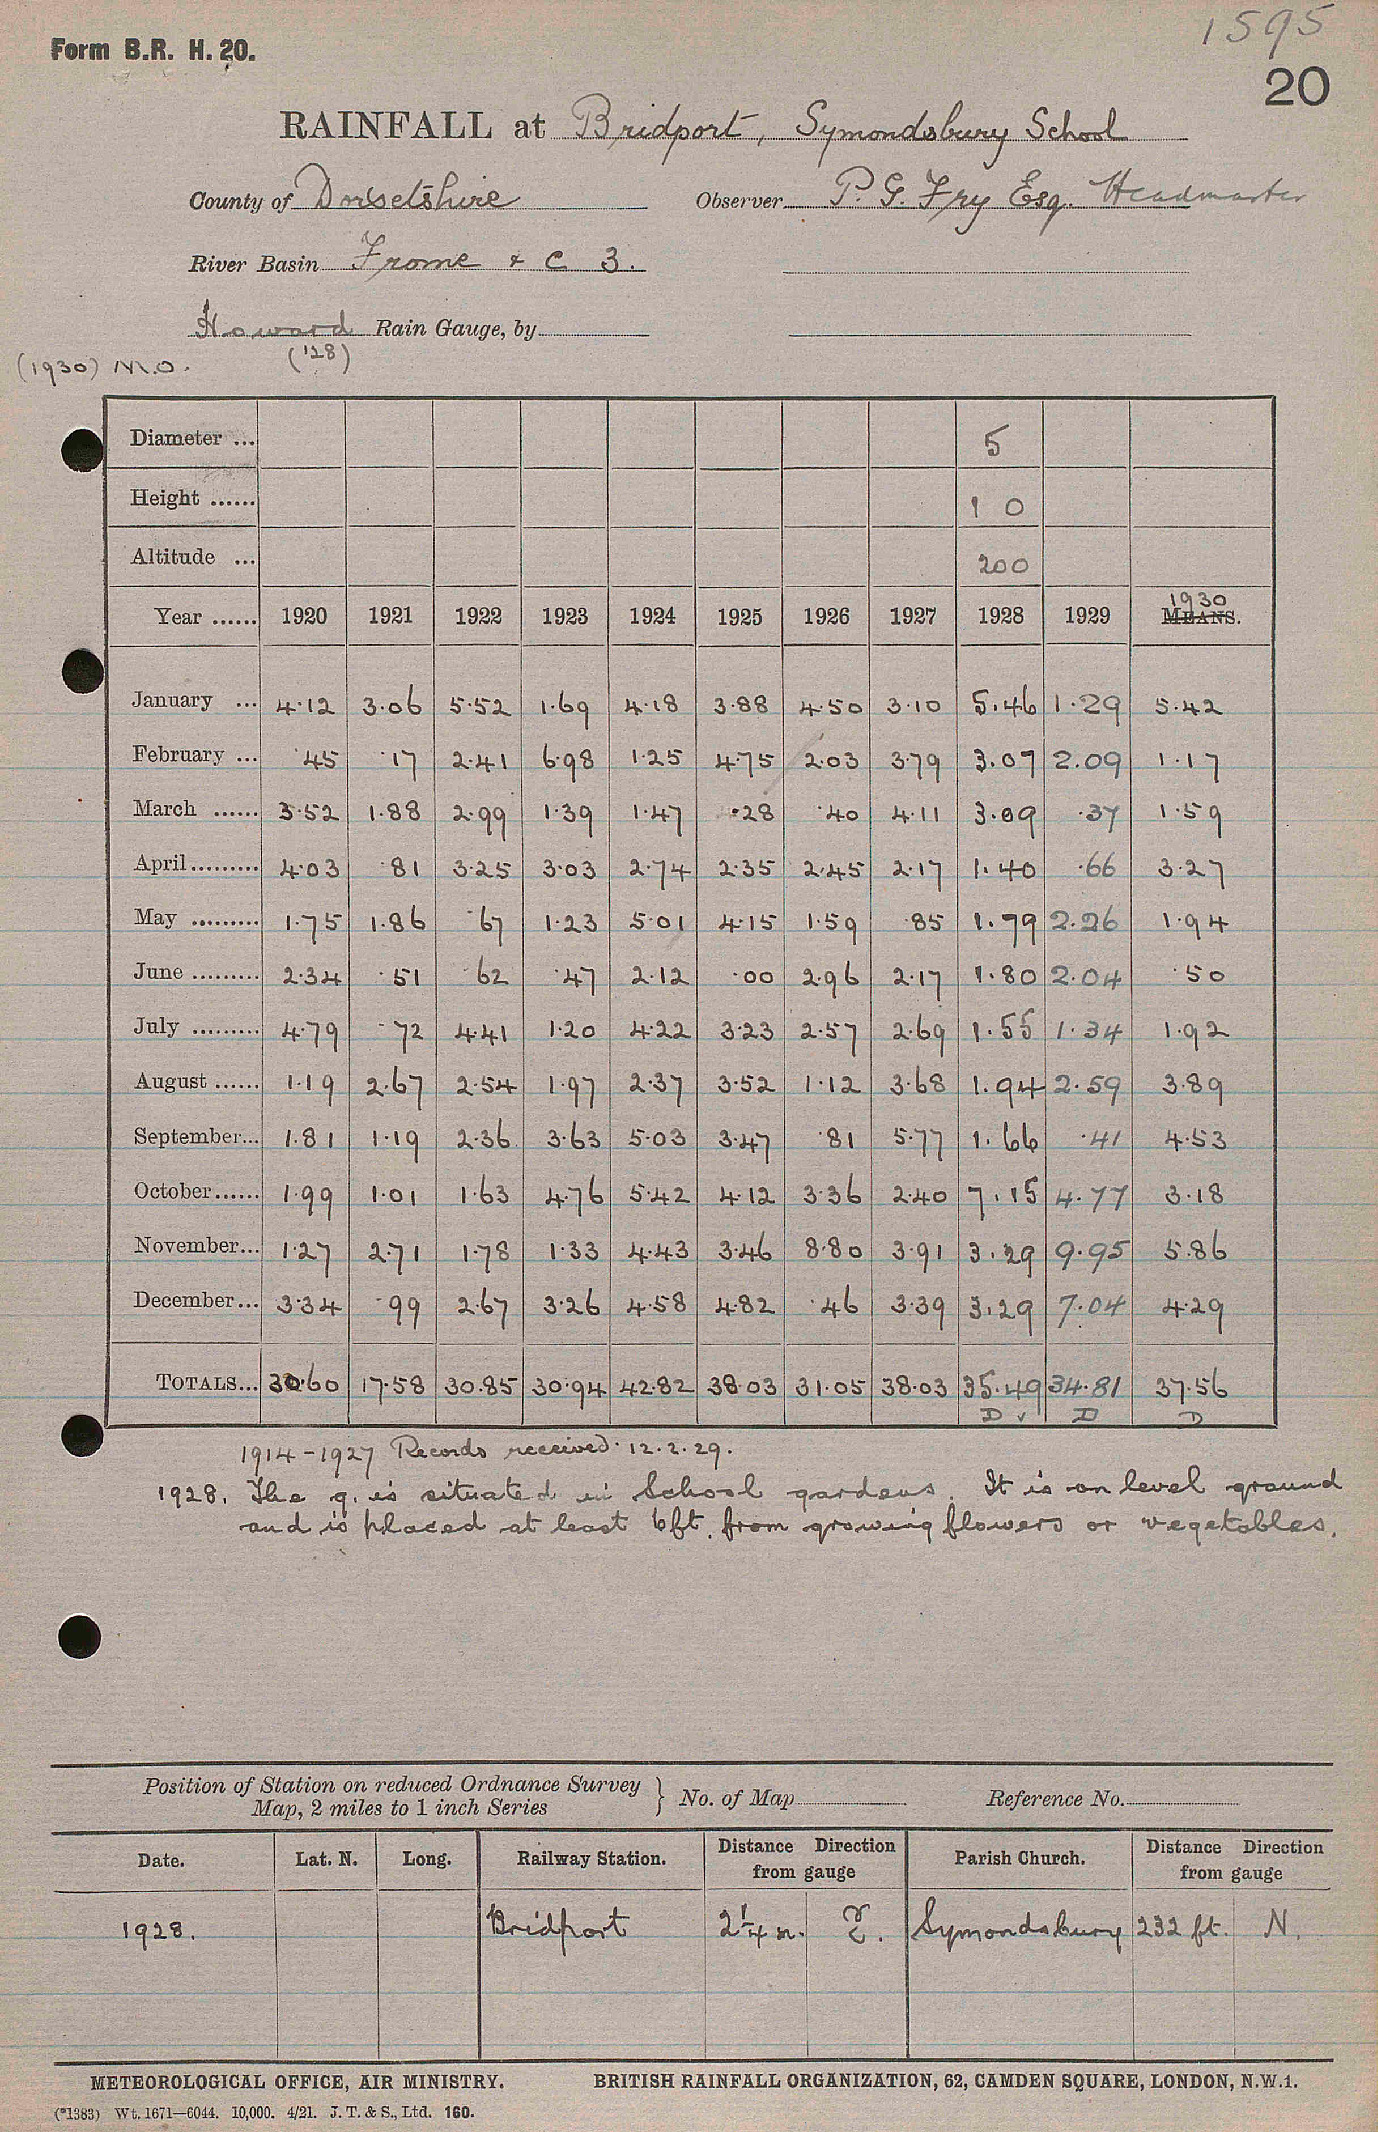 1595
Form B.R. H. 20.
20
RAINFALL at Bridport, Symondsbury School
County of Dorsetshire Observer P. G. Fry Esq. Headmaster
River Basin Frome & C 3.
Howard Rain Gauge, by
(1930) M.O. ('28)
Diameter ... 5
Height ...... 1 0
Altitude ... 200
1930
Year ...... 1920 1921 1922 1923 1924 1925 1926 1927 1928 1929 MEANS.
January ... 4.12 3.06 5.52 1.69 4.18 3.88 4.50 3.10 5.46 1.29 5.42
February ... .45 .17 2.41 6.98 1.25 4.75 2.03 3.79 3.07 2.09 1.17
March ...... 3.52 1.88 2.99 1.39 1.47 .28 .40 4.11 3.09 .37 1.59
April ......... 4.03 .81 3.25 3.03 2.74 2.35 2.45 2.17 1.40 .66 3.27
May ......... 1.75 1.86 .67 1.23 5.01 4.15 1.59 .85 1.79 2.26 1.94
June ......... 2.34 .51 .62 .47 2.12 .00 2.96 2.17 1.80 2.04 .50
July ......... 4.79 .72 4.41 1.20 4.22 3.23 2.57 2.69 1.55 1.34 1.92
August ...... 1.19 2.67 2.54 1.97 2.37 3.52 1.12 3.68 1.94 2.59 3.89
September... 1.81 1.19 2.36 3.63 5.03 3.47 .81 5.77 1.66 .41 4.53
October...... 1.99 1.01 1.63 4.76 5.42 4.12 3.36 2.40 7.15 4.77 3.18
November... 1.27 2.71 1.78 1.33 4.43 3.46 8.80 3.91 3.29 9.95 5.86
December... 3.34 .99 2.67 3.26 4.58 4.82 .46 3.39 3.29 7.04 4.29
TOTALS... 30.60 17.58 30.85 30.94 42.82 38.03 31.05 38.03 35.49 34.81 37.56
D ✓ D D
1914-1927 Records received 12.2.29.
1928. The g. is situated in School gardens. It is on level ground
and is placed at least 6ft. from growing flowers or vegetables.
Position of Station on reduced Ordnance Survey
Map, 2 miles to 1 inch Series } No. of Map Reference No.
Date. Lat. N. Long. Railway Station. Distance Direction from gauge Parish Church. Distance Direction from gauge
1928. Bridport 2¼ m. E. Symondsbury 232 ft. N.
METEOROLOGICAL OFFICE, AIR MINISTRY. BRITISH RAINFALL ORGANIZATION, 62, CAMDEN SQUARE, LONDON, N.W.1.
(*1383) Wt. 1671—6044. 10,000. 4/21. J. T. & S., Ltd. 160.